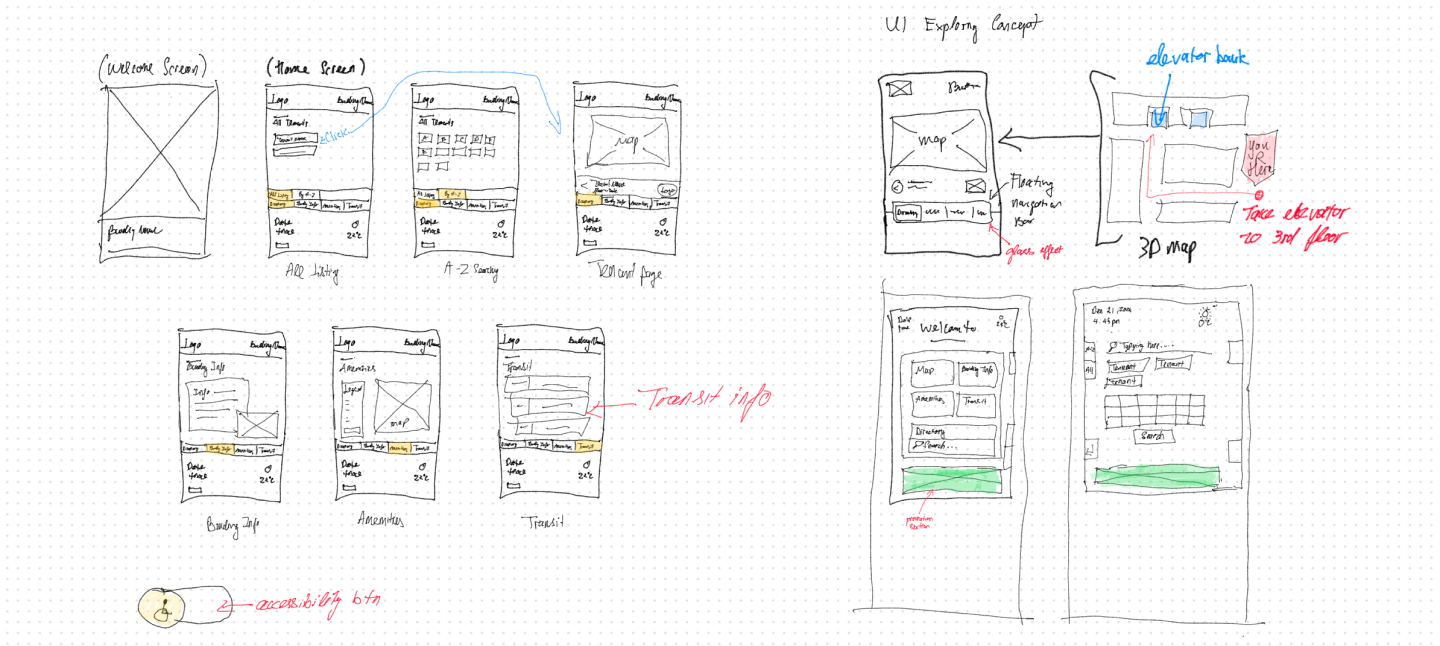 UI Exploring Concept
(Welcome Screen)
Building Name
(Home Screen)
Logo
Building Name
All Tenants
Click
All Listing
By A-Z
Directory
Building Info
Amenities
Transit
Date
time
22°C
All Listing
Logo
Building Name
All Tenants
A
B
C
D
E
F
All Listing
By A-Z
Directory
Building Info
Amenities
Transit
Date
time
22°C
A-Z Searching
Logo
Building Name
Map
Logo
Directory
Building Info
Amenities
Transit
Date
time
22°C
Tenant page
Logo
Building Name
Building Info
Info
Directory
Building Info
Amenities
Transit
Date
time
22°C
Building Info
Logo
Building Name
Amenities
Legend
map
Directory
Building Info
Amenities
Transit
Date
time
22°C
Amenities
Logo
Building Name
Transit
Directory
Building Info
Amenities
Transit
Date
time
22°C
Transit
Transit info
accessibility btn
Button
map
Directory
Floating
navigation
Bar
glass effect
elevator bank
You
R
Here
Take elevator
to 3rd floor
3D map
Date
time
Welcome to
22°C
Map
Building Info
Amenities
Transit
Directory
Search...
promotion
section
Dec 21, 2001
4:45 pm
0°C
Typing here....
A-Z
All
Tenant
Tenant
Tenant
Search